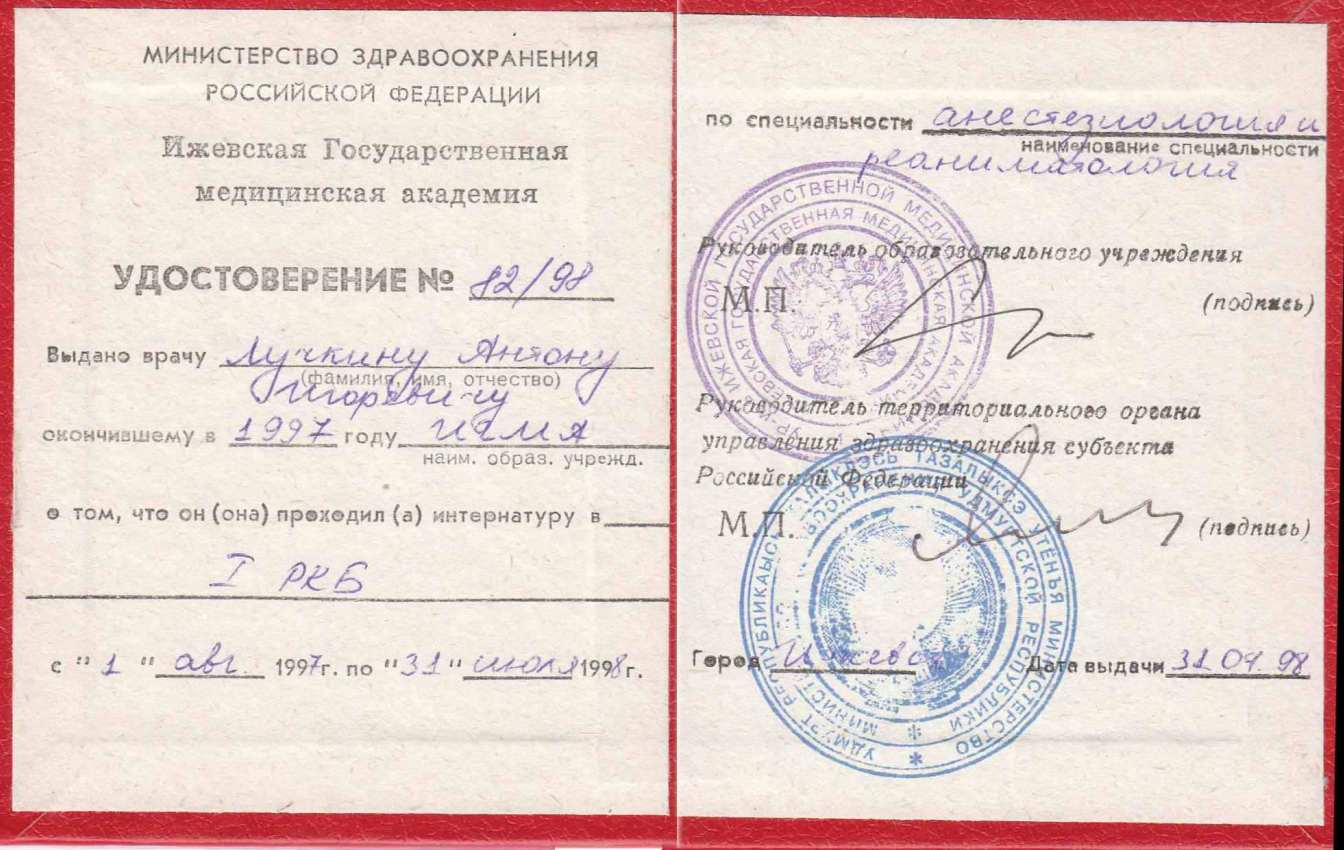 МИНИСТЕРСТВО ЗДРАВООХРАНЕНИЯ
РОССИЙСКОЙ ФЕДЕРАЦИИ
Ижевская Государственная
медицинская академия
УДОСТОВЕРЕНИЕ № 82/98
Выдано врачу Лучкину Антону
(фамилия, имя, отчество)
Игоревичу
окончившему в 1997 году ИГМА
наим. образ. учрежд.
о том, что он (она) проходил (а) интернатуру в
I РКБ
с "1" авг. 1997г. по "31" июля 1998г.
по специальности анестезиология и
наименование специальности
реаниматология
Руководитель образовательного учреждения
М.П. (подпись)
Руководитель территориального органа
управления здравоохранения субъекта
Российской Федерации
М.П. (подпись)
Город Ижевск Дата выдачи 31.07.98
ИЖЕВСКОЙ ГОСУДАРСТВЕННОЙ МЕДИЦИНСКОЙ
ГОСУДАРСТВЕННАЯ МЕДИЦИНСКАЯ АКАДЕМИЯ
УДМУРТ ТАЗАЛЫКЕЗ УТЁНЪЯ МИНИСТЕРСТВО
УДМУРТСКОЙ РЕСПУБЛИКИ